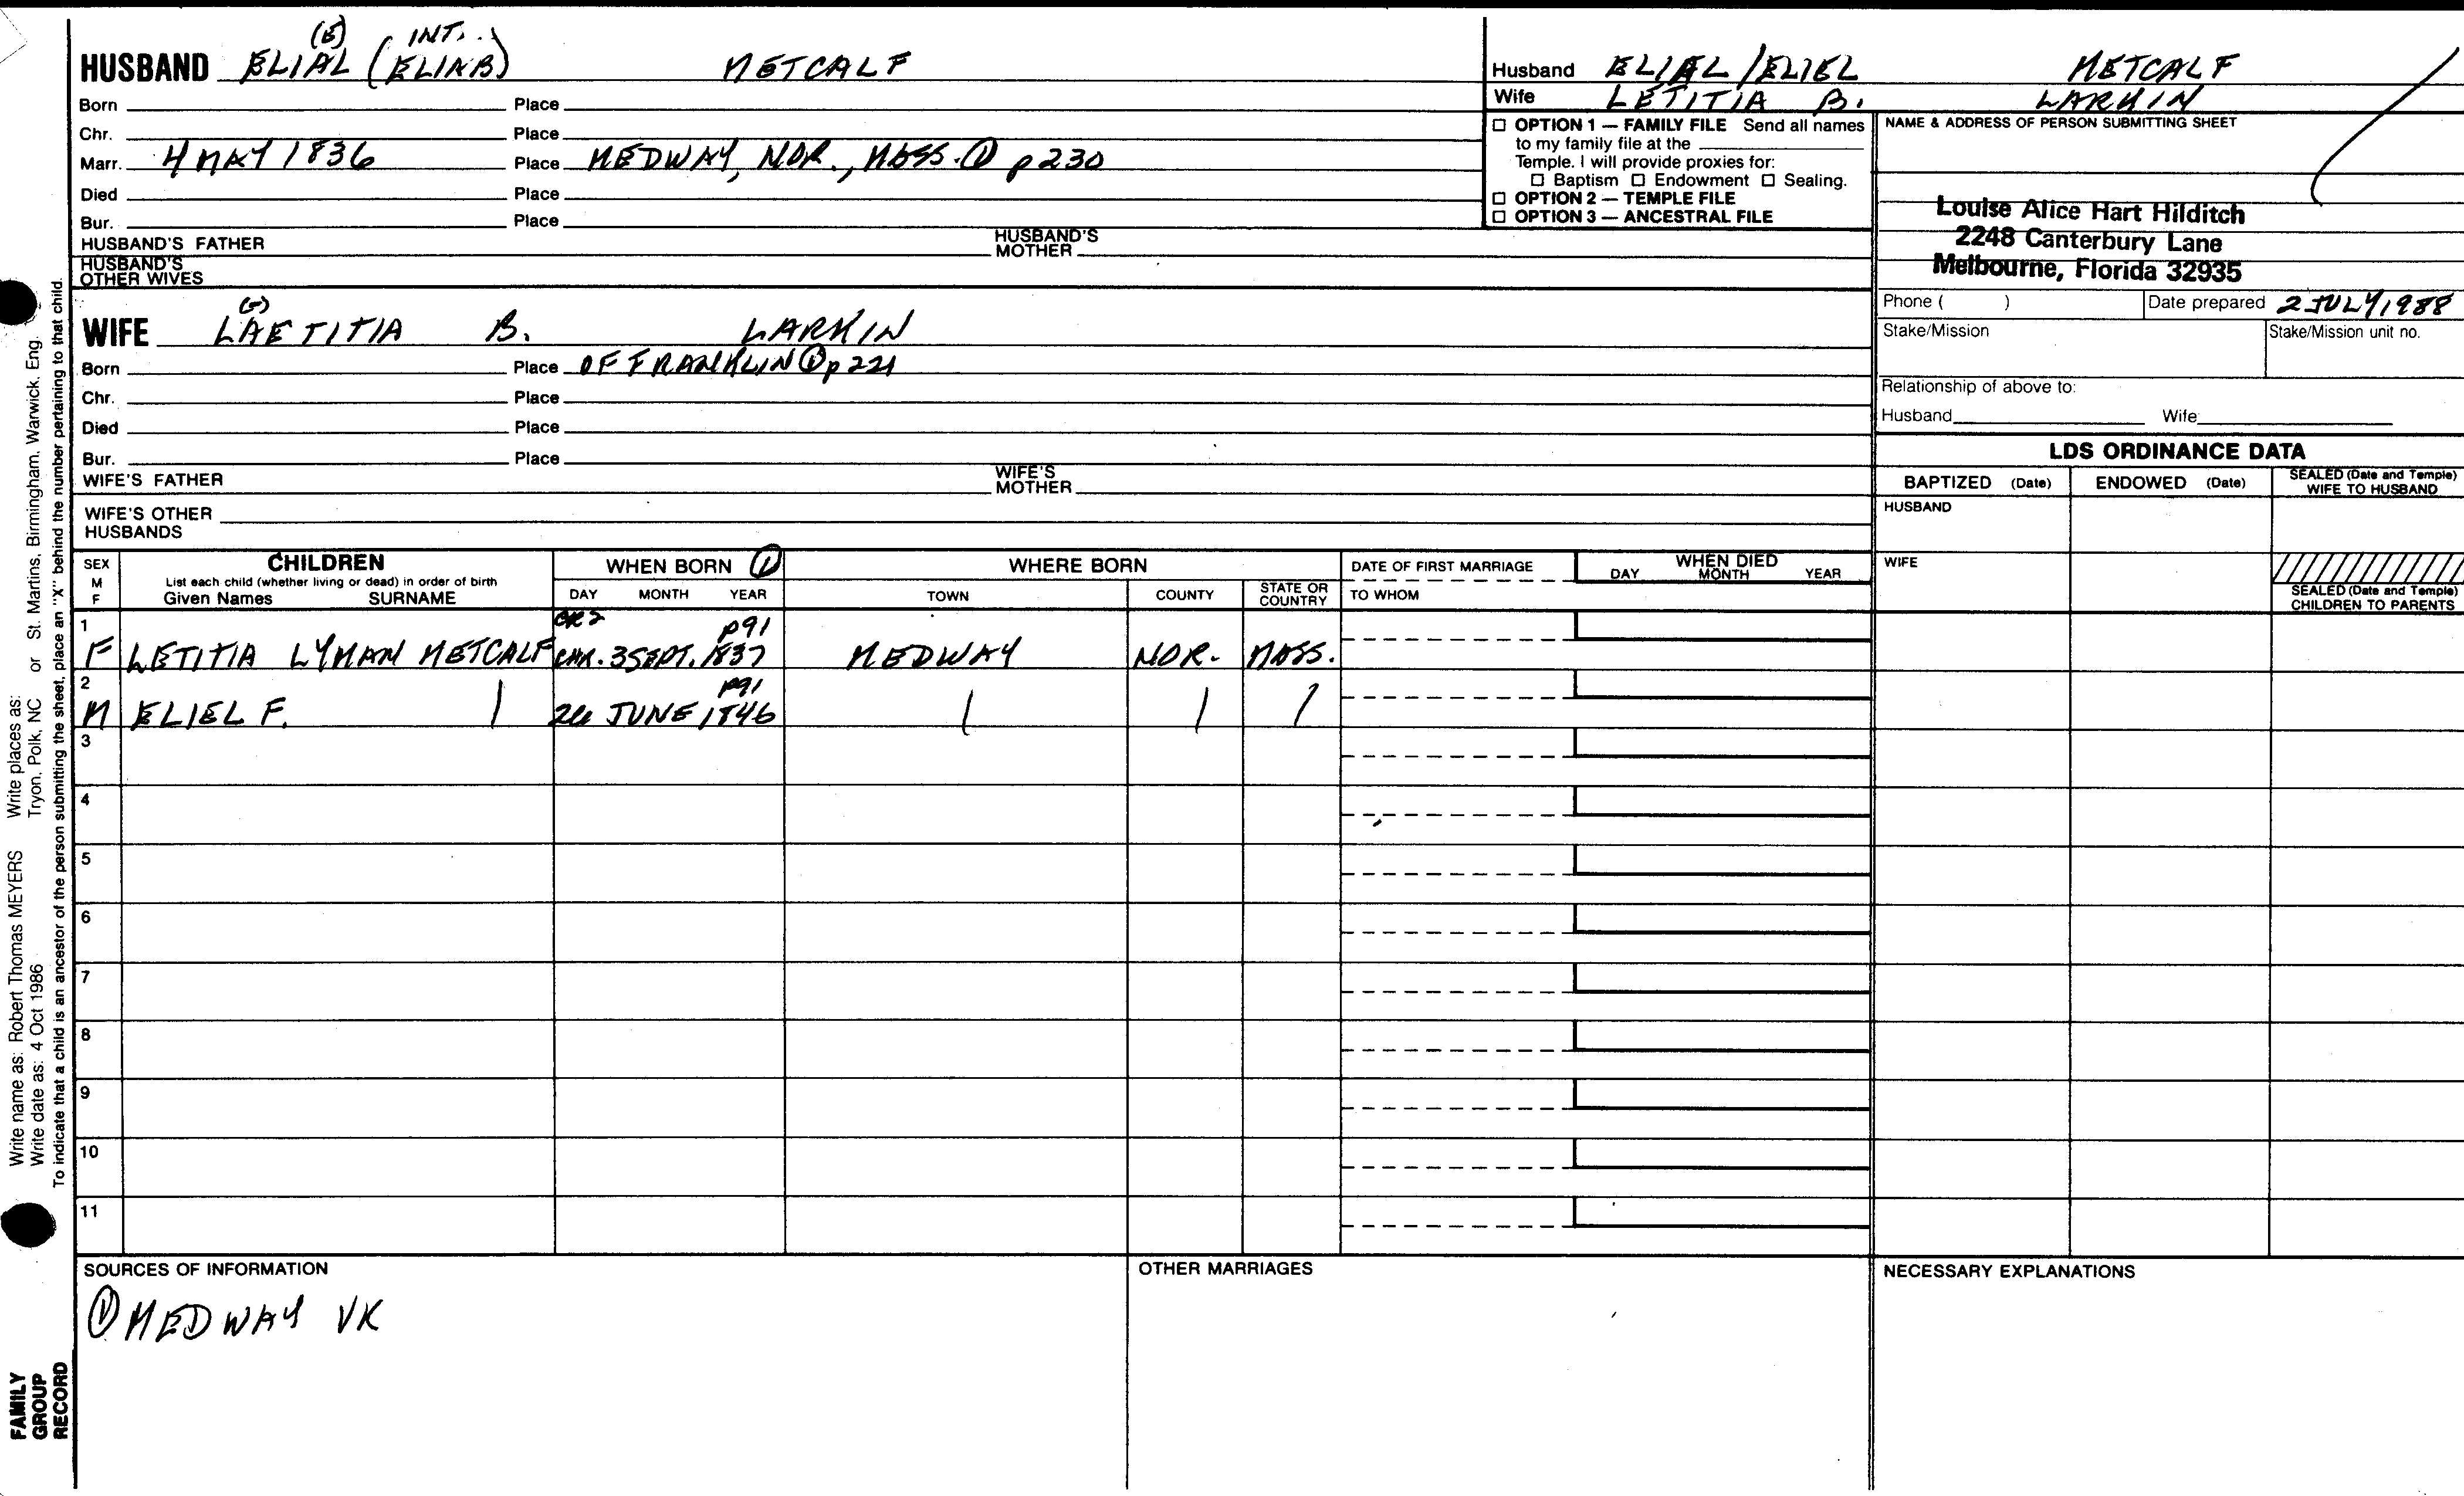 (E) INT.
HUSBAND ELIAL (ELIAB) METCALF
Born Place
Chr. Place
Marr. 4 MAY 1836 Place MEDWAY, NOR., MASS. ① p230
Died Place
Bur. Place
HUSBAND'S FATHER HUSBAND'S MOTHER
HUSBAND'S OTHER WIVES
(-)
WIFE LAETITIA B. LARKIN
Born Place OF FRANKLIN ① p221
Chr. Place
Died Place
Bur. Place
WIFE'S FATHER WIFE'S MOTHER
WIFE'S OTHER HUSBANDS
Husband ELIAL/ELIEL METCALF
Wife LETITIA B. LARKIN
☐ OPTION 1 — FAMILY FILE Send all names
to my family file at the
Temple. I will provide proxies for:
☐ Baptism ☐ Endowment ☐ Sealing.
☐ OPTION 2 — TEMPLE FILE
☐ OPTION 3 — ANCESTRAL FILE
NAME & ADDRESS OF PERSON SUBMITTING SHEET
Louise Alice Hart Hilditch
2248 Canterbury Lane
Melbourne, Florida 32935
Phone ( ) Date prepared 2 JULY 1988
Stake/Mission Stake/Mission unit no.
Relationship of above to:
Husband Wife
LDS ORDINANCE DATA
BAPTIZED (Date) ENDOWED (Date) SEALED (Date and Temple) WIFE TO HUSBAND
HUSBAND
WIFE
SEALED (Date and Temple) CHILDREN TO PARENTS
SEX M F
CHILDREN
List each child (whether living or dead) in order of birth
Given Names SURNAME
WHEN BORN ①
DAY MONTH YEAR
WHERE BORN
TOWN COUNTY STATE OR COUNTRY
DATE OF FIRST MARRIAGE
TO WHOM
WHEN DIED
DAY MONTH YEAR
1 CR2 p91
F LETITIA LYMAN METCALF CHR. 3 SEPT. 1837 MEDWAY NOR. MASS.
2 p91
M ELIEL F. JUNE 1846
3
4
5
6
7
8
9
10
11
SOURCES OF INFORMATION
① MEDWAY VR
OTHER MARRIAGES
NECESSARY EXPLANATIONS
Write name as: Robert Thomas MEYERS Write places as:
Write date as: 4 Oct 1986 Tryon, Polk, NC or St. Martins, Birmingham, Warwick, Eng.
To indicate that a child is an ancestor of the person submitting the sheet, place an "X" behind the number pertaining to that child.
FAMILY
GROUP
RECORD